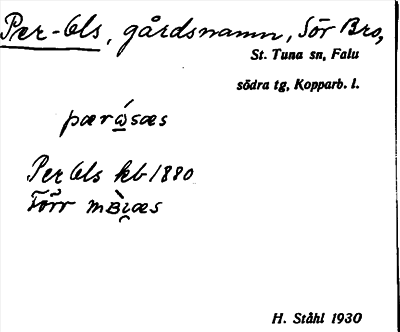 Per-Ols, gårdsnamn, Sör Bro,
St. Tuna sn, Falu
södra tg, Kopparb. l.
pær ώ̲sæs
Per Ols kb 1880
H. Ståhl 1930